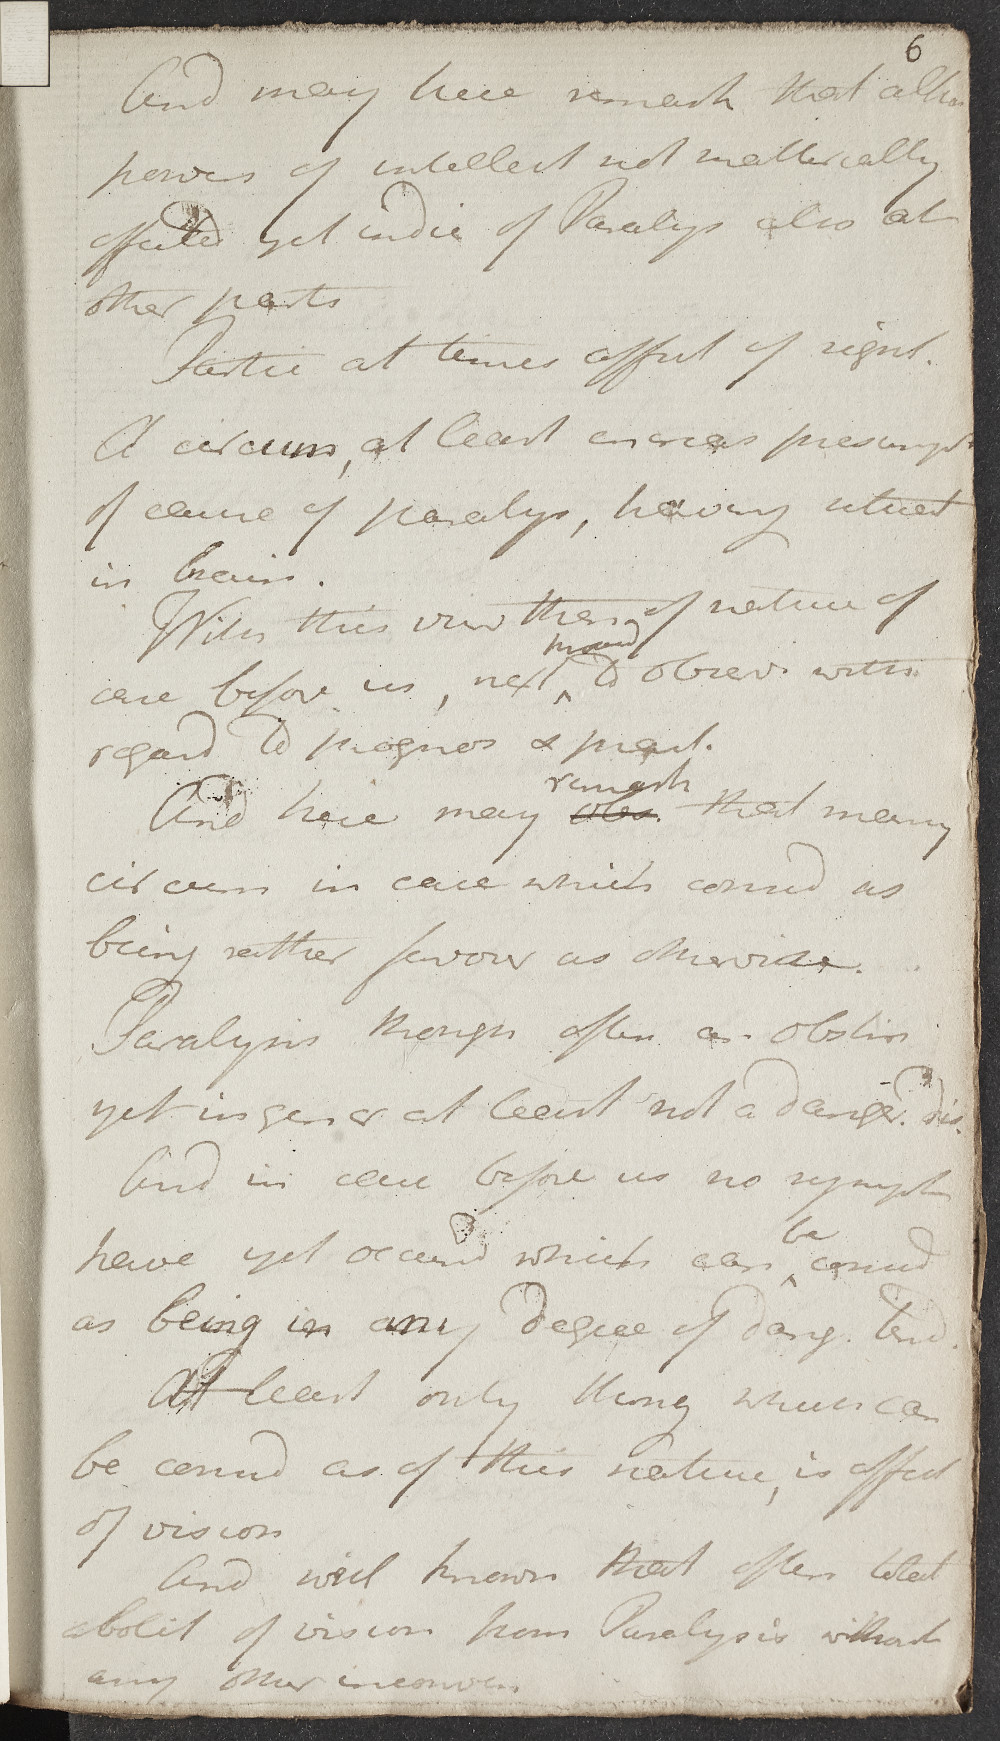 6
And may here remark that altho
powers of intellect not mattereally
affected yet indic of Paralys also at
other parts
Partic at times affect of sight.
A circum, at least encreas presumpt
of cause of paralys, having situat
in brain.
With this view then of nature of
proceed
case before us, next ^ to observ. with
regard to prognos & pract.
remark
And here may obs. that many
circum in case which consid as
being rather favour as otherwise.
Paralysis though often an obstin
yet in gener at least not a danger. dis.
And in case before us no sympt
be
have yet occurd which can ^ consid
as being in any degree of dang. tend.
At least only thing which can
be consid as of this nature, is affect
of vision
And well known that often total
abolit of vision from Paralysis without
any other inconven